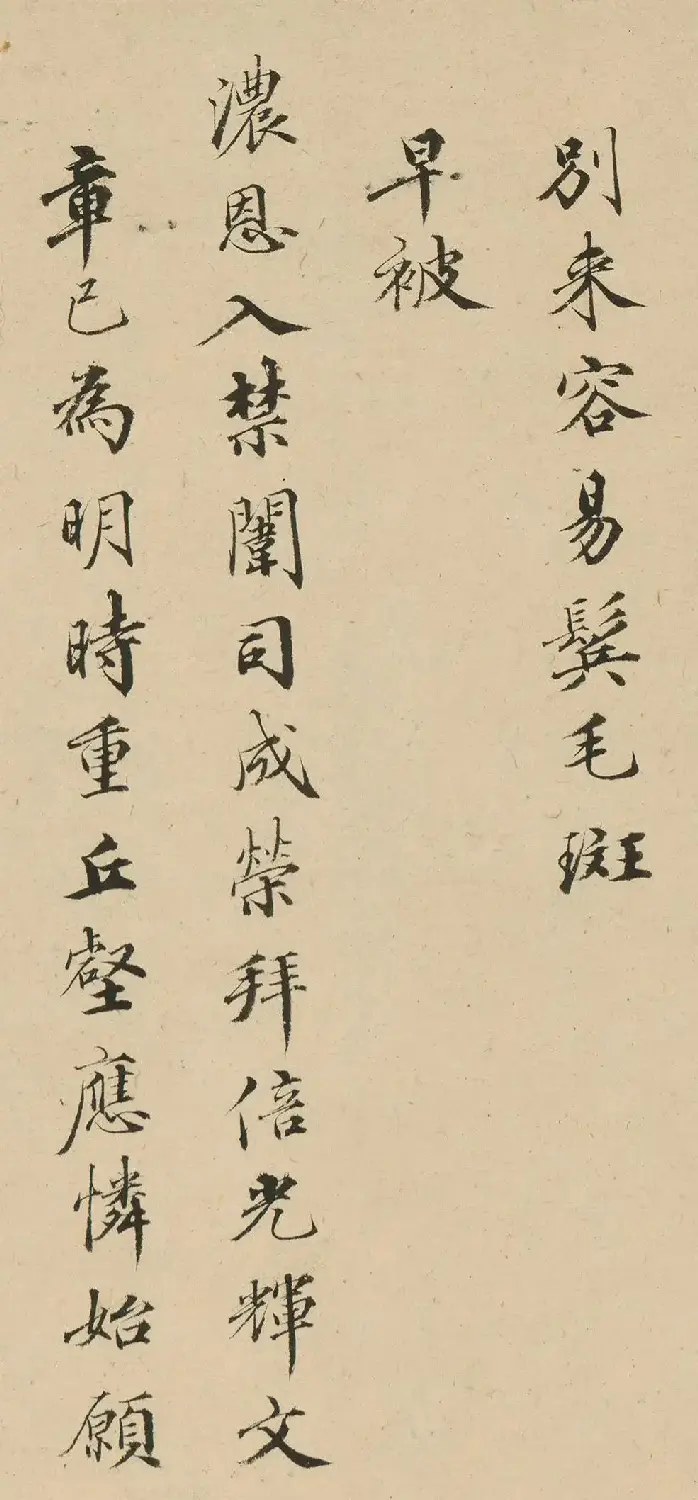 別来容易鬓毛斑
早被
濃恩入禁闈司成榮拜倍光輝文
章已為明時重丘壑應憐始願